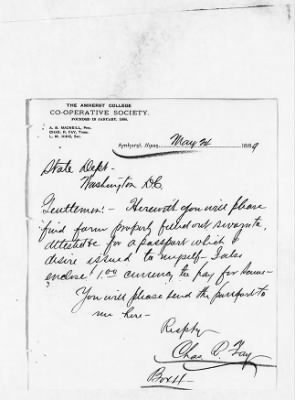 THE AMHERST COLLEGE
CO-OPERATIVE SOCIETY.
FOUNDED IN JANUARY, 1888.
CHAS. P. FAY, Treas.
Amherst, Mass. May 24 1889
State Dept-
Washington D.C.
Gentlemen:- Herewith you will please
find form properly filled out sworn to
attested to for a passport which I
desire issued to myself- I also
enclose 1.00 currency to pay for same-
You will please send the passport to
me here-
Respty
Chas. P. Fay
Box 4-